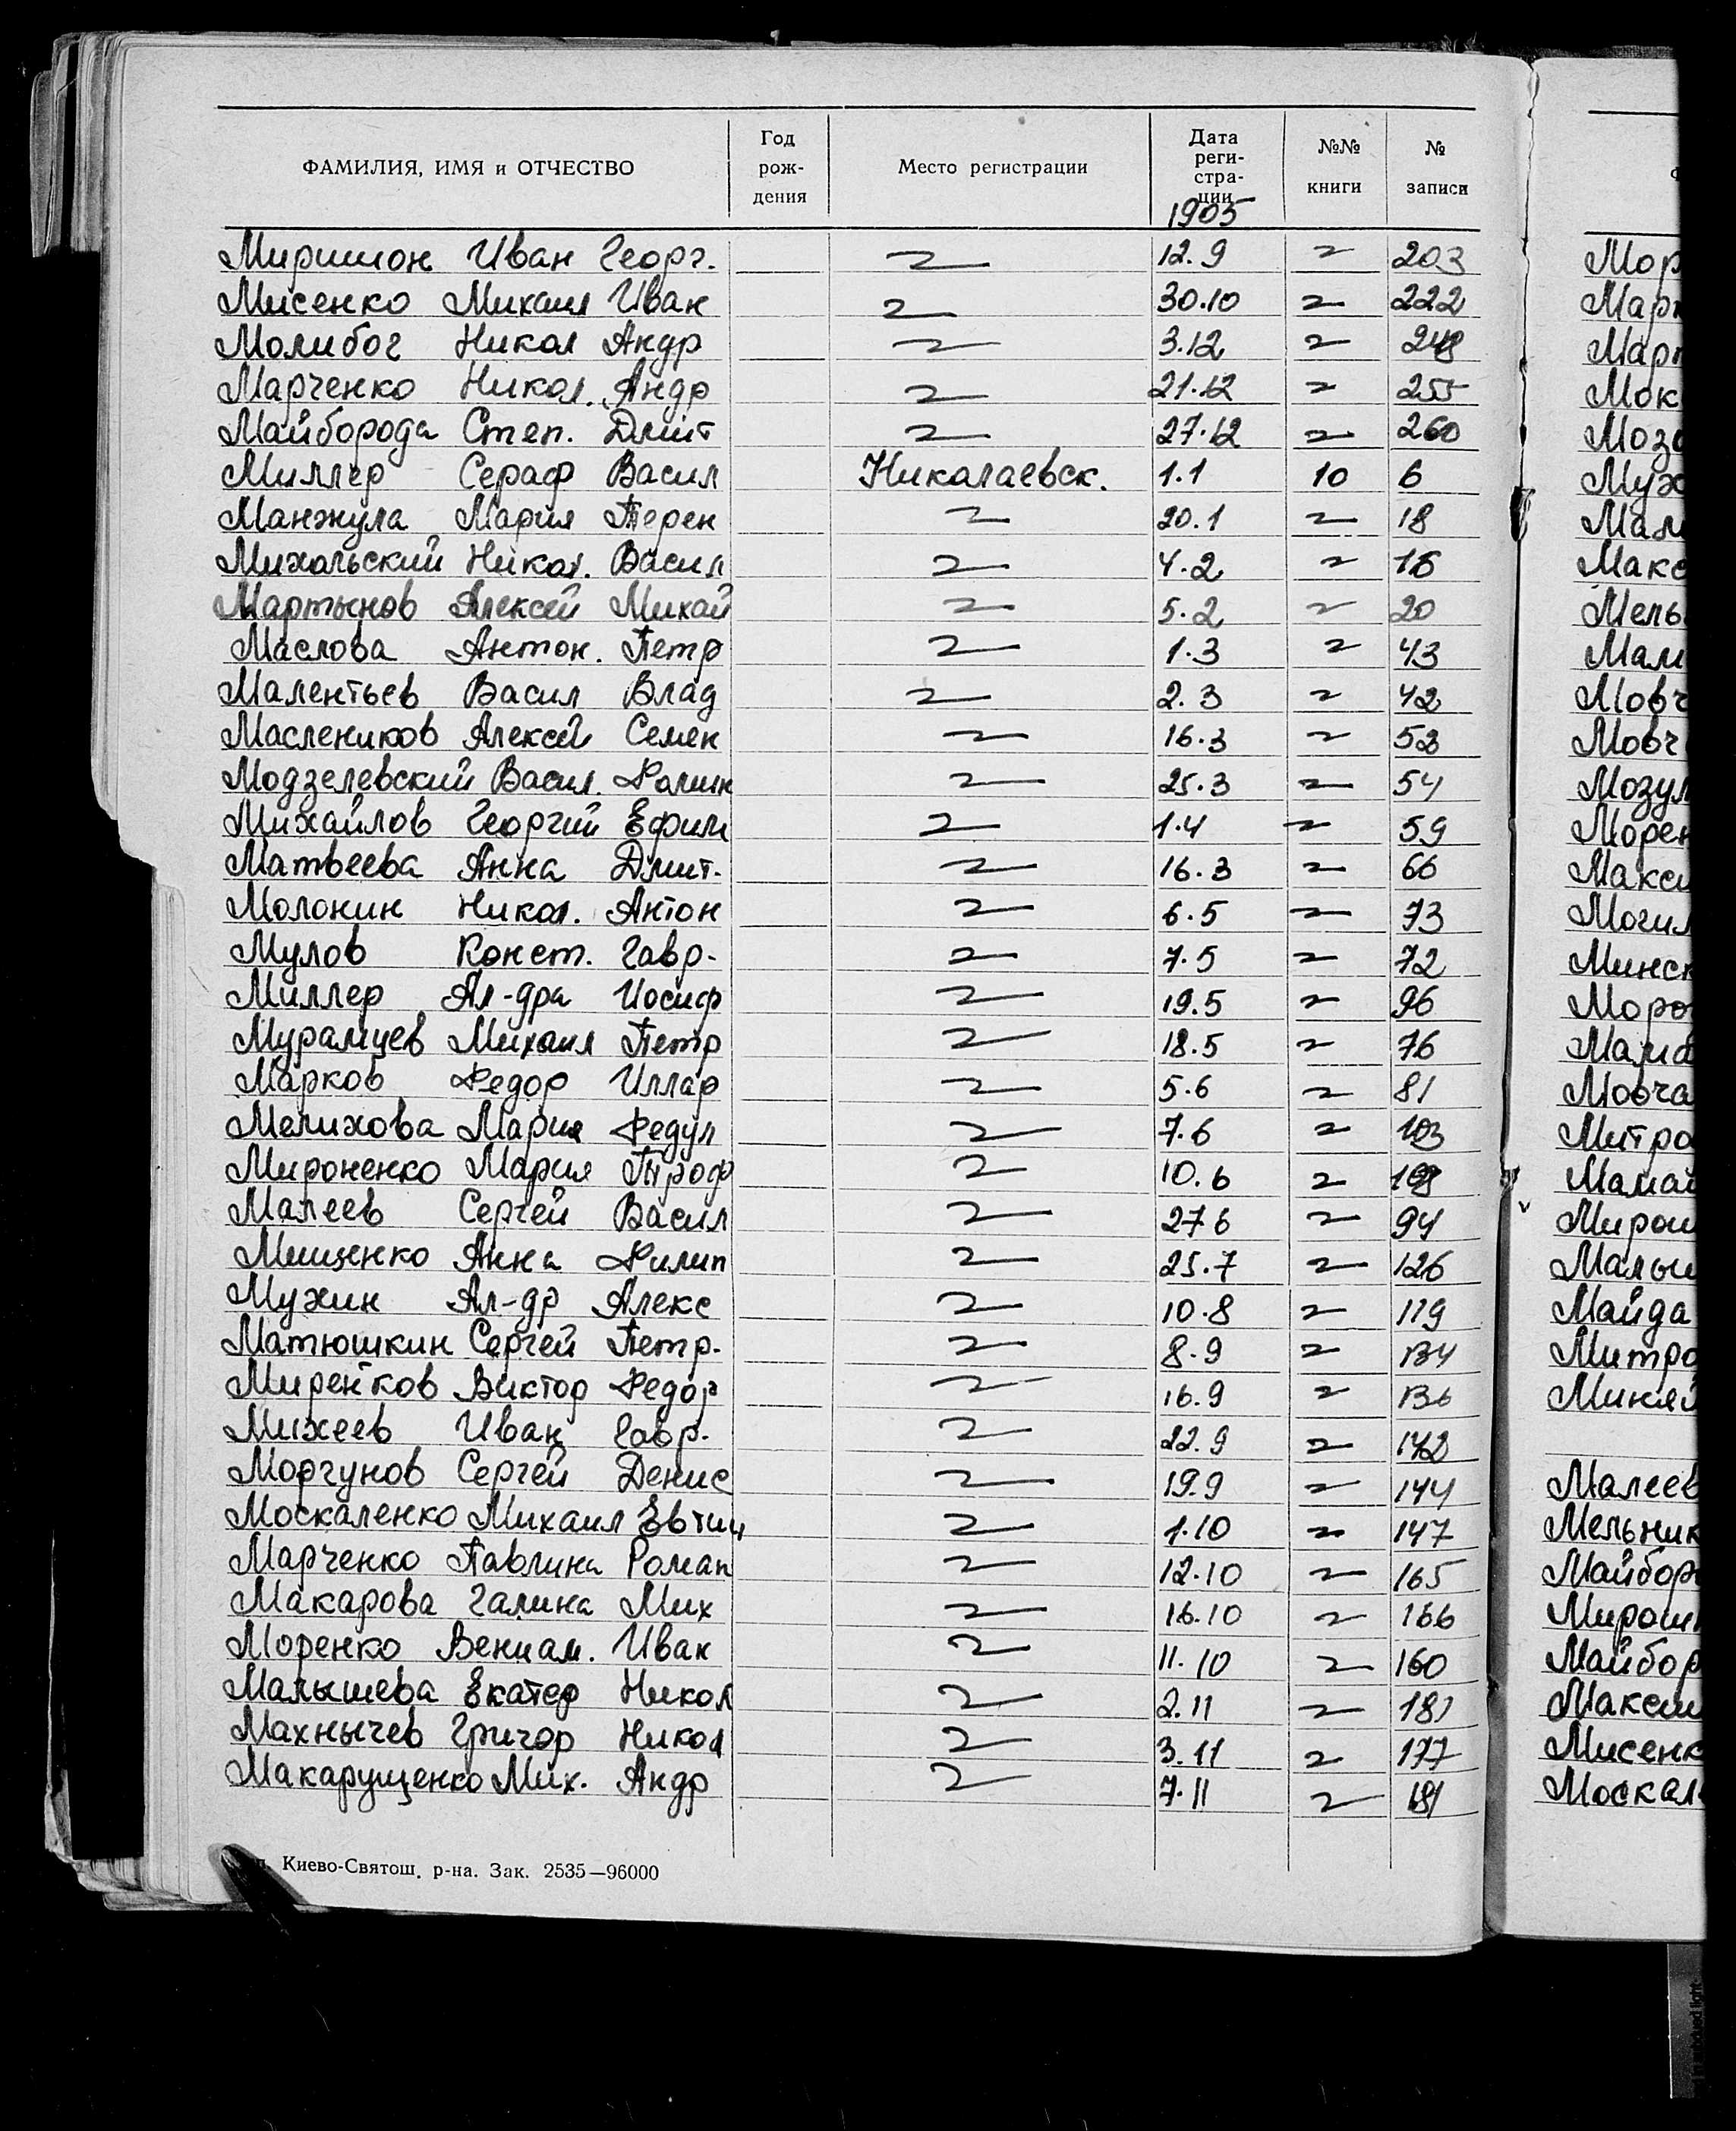 ФАМИЛИЯ, ИМЯ и ОТЧЕСТВО Год рож- дения Место регистрации Дата реги- стра- ции №№ книги № записи
1905
Миришон Иван Георг. 〃 12.9 〃 203
Мисенко Михаил Иван 〃 30.10 〃 222
Молибог Никол Андр 〃 3.12 〃 248
Марченко Никол. Андр 〃 21.12 〃 255
Майборода Степ. Дмит 〃 27.12 〃 260
Миллер Сераф Васил Николаевск. 1.1 10 6
Манжула Мария Терен 〃 20.1 〃 18
Михальский Никол. Васил 〃 4.2 〃 16
Мартынов Алексей Михай 〃 5.2 〃 20
Маслова Антон. Петр 〃 1.3 〃 43
Малентьев Васил Влад 〃 2.3 〃 42
Маслеников Алексей Семен 〃 16.3 〃 52
Модзелевский Васил. 〃 25.3 〃 54
Михайлов Георгий Ефим 〃 1.4 〃 59
Матвеева Анна Дмит. 〃 16.3 〃 66
Молонин Никол. Антон 〃 6.5 〃 73
Мулов Конст. Гавр. 〃 7.5 〃 72
Миллер Ал-дра Иосиф 〃 19.5 〃 96
Мурамцев Михаил Петр 〃 18.5 〃 76
Марков Федор Иллар 〃 5.6 〃 81
Мелихова Мария Федул 〃 7.6 〃 103
Мироненко Мария Троф 〃 10.6 〃
Малеев Сергей Васил 〃 27 6 〃 94
Мищенко Анна Филип 〃 25.7 〃 126
Мухин Ал-др Алекс 〃 10.8 〃 119
Матюшкин Сергей Петр. 〃 8.9 〃 134
Миренков Виктор Федор 〃 16.9 〃 136
Михеев Иван Гавр. 〃 22.9 〃 142
Моргунов Сергей Денис 〃 19.9 〃 144
Москаленко Михаил Евтих 〃 1.10 〃 147
Марченко Павлина Роман 〃 12.10 〃 165
Макарова Галина Мих 〃 16.10 〃 166
Моренко Вениам. Иван 〃 11.10 〃 160
Малышева Екатер Никол 〃 2.11 〃 181
Махнычев Григор Никол 〃 3.11 〃 177
Макарущенко Мих. Андр 〃 7.11 〃 181
Киево-Святош. р-на. Зак. 2535—96000
Мор
Март
Март
Мок
Мозо
Мух
Мам
Макс
Мель
Мал
Мовч
Мовч
Мозул
Морен
Макси
Могил
Минск
Моро
Мама
Мовча
Митро
Мамай
Мирош
Малыш
Майда
Митро
Миняй
Малеев
Мельник
Майбор
Мирош
Майбор
Максим
Мисенк
Москал